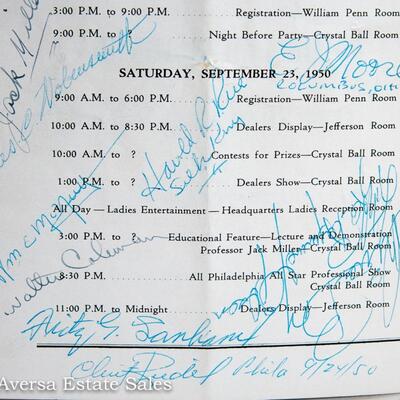 3:00 P.M. to 9:00 P.M. Registration—William Penn Room
9:00 P.M. to ? Night Before Party—Crystal Ball Room
Jack Mille
E J Moore
COLUMBUS, OHI
SATURDAY, SEPTEMBER 23, 1950
9:00 A.M. to 6:00 P.M. Registration—William Penn Room
10:00 A.M. to 8:30 P.M. Dealers Display—Jefferson Room
Harold R. Rice
Silk King
10:00 A.M. to ? Contests for Prizes—Crystal Ball Room
1:00 P.M. to ? Dealers Show—Crystal Ball Room
All Day—Ladies Entertainment—Headquarters Ladies Reception Room
3:00 P.M. to ? Educational Feature—Lecture and Demonstration
Professor Jack Miller—Crystal Ball Room
Walter Coleman
8:30 P.M. All Philadelphia All Star Professional Show
Crystal Ball Room
11:00 P.M. to Midnight Dealers Display—Jefferson Room
Phila 9/24/50
Aversa Estate Sales